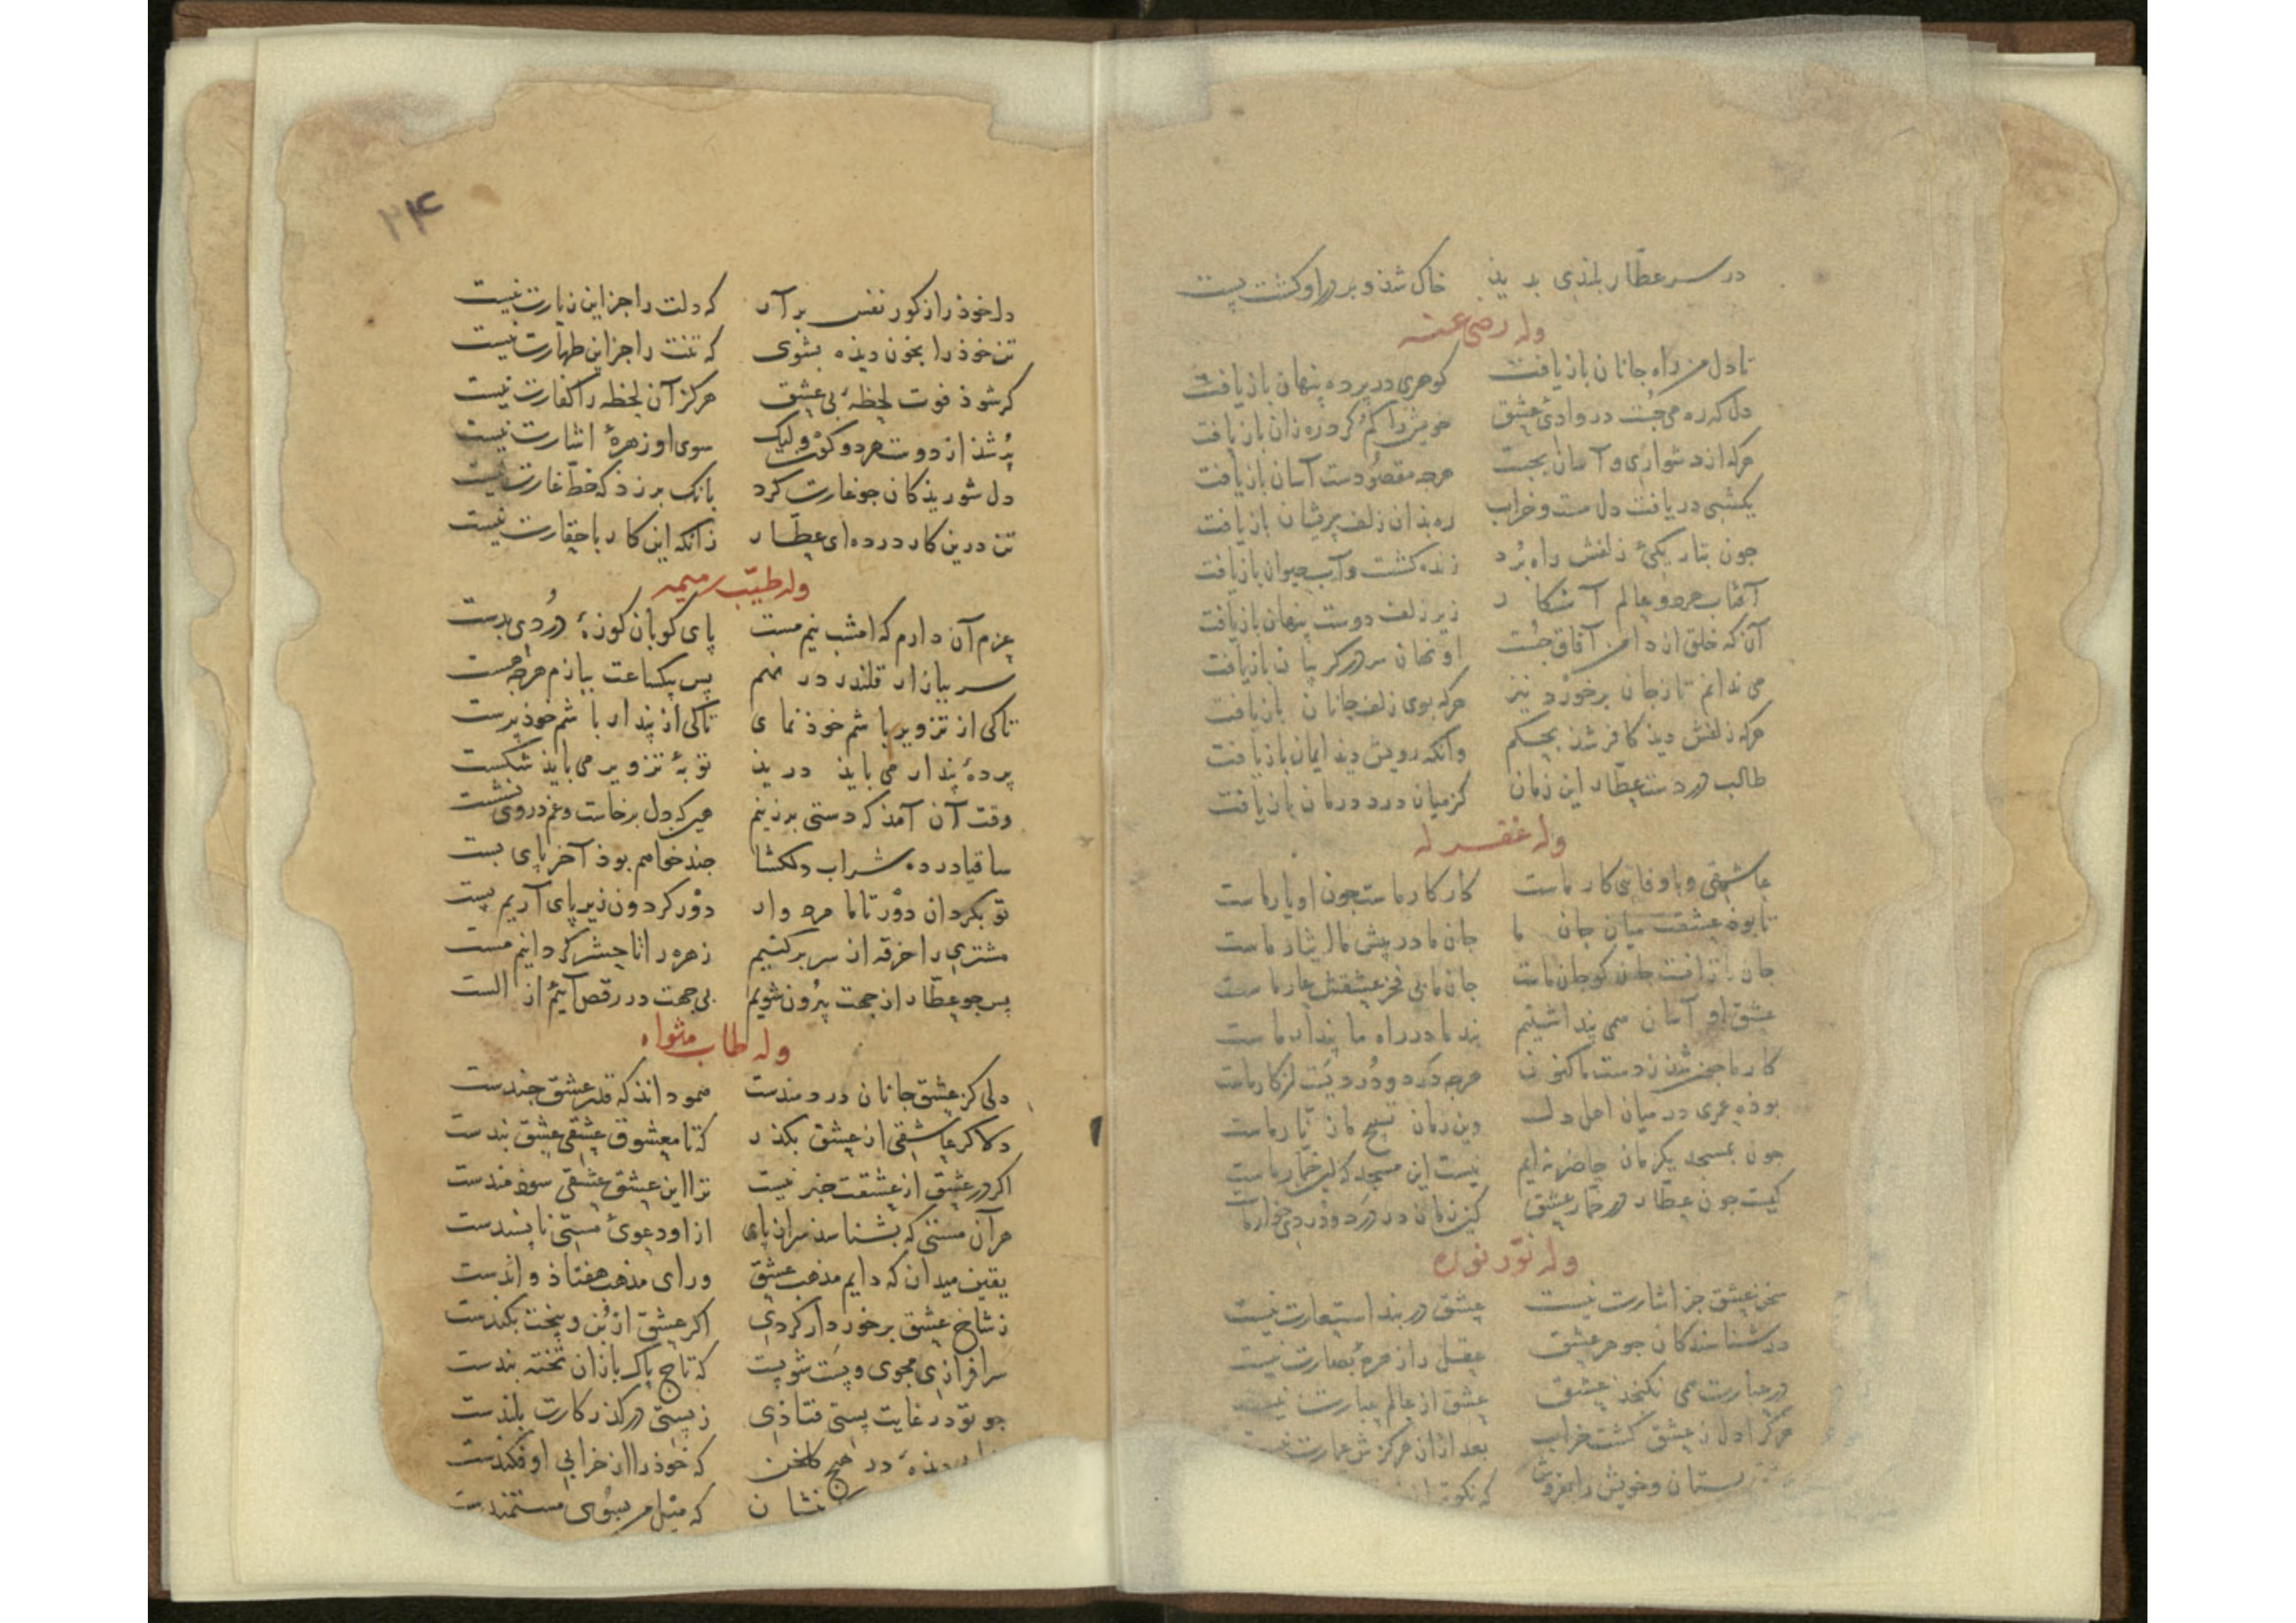 در سر عطار بلندی بدید خاک شذ و بر در او کشت پست
وله رضی عنه
تا دل من راه جانان بازیافت کوهری در پرده پنهان بازیافت
دل که ره می جست در وادیٔ عشق خویش را کم کرد و ره زان بازیافت
هرکه از دشواری و آسان بجست هرچه مقصودست آسان بازیافت
یکشبی دریافت دل مست و خراب ره بذان زلف پریشان بازیافت
جون بتاریکیٔ زلفش راه برد زنده کشت و آب حیوان بازیافت
آفتاب هردو عالم آشکار زیر زلف دوست پنهان بازیافت
آن که خلق از دامن آفاق جست او نهان سر در کریبان بازیافت
می ندانم تا زجان برخورد نیز هرکه بوی زلف جانان بازیافت
هرکه زلفش دید کافر شد بحکم وانکه رویش دید ایمان بازیافت
طالب دردست عطار این زمان کز میان درد درمان بازیافت
وله غفر له
عاشقی و باوفایی کار ماست کار کار ماست جون او یار ماست
تا بوذ عشقت میان جان ما جان ما در پیش ما ایثار ماست
جان ما بی فخر عشقش عار ماست
عشق او آسان همی پنداشتیم بند ما در راه ما پندار ماست
کار ما جون شذ ز دست ما کنون هرجه درد و درد نیست از کار ماست
بوذه عمری در میان اهل دل وین زمان تسبیح مان زنار ماست
جون بمسجد یکزمان حاضر نه ایم نیست این مسجد که این خمار ماست
کیست جون عطار در خمار عشق کین زمان در درد دردی خوار ماست
وله نور نوره
سخن عشق جز اشارت نیست عشق در بند استعارت نیست
در شناسندکان جوهر عشق عقل را زهرهٔ بصارت نیست
در عبارت همی نکنجذ عشق عشق از عالم عبارت نیست
هرکرا دل ز عشق کشت خراب بعد ازان هرکزش عمارت نیست
بستان و خویش را بفروش که نکوتر
۲۴
دل خوذ را ز کور نفس برآر که دلت را جز این زیارت نیست
تن خوذ را بخون دیذه بشوی که تنت را جز این طهارت نیست
کر شوذ فوت لحظهٔ بی عشق هرکز آن لحظه را کفارت نیست
پُر شذ از دوست هردو کون ولیک سوی او زهرهٔ اشارت نیست
دل شوریذکان جو غارت کرد بانک برزد که خط غارت نیست
تن درین کار درده ای عطار زانکه این کار با حقارت نیست
وله طیّب رمیمه
عزم آن دارم که امشب نیم مست پای کوبان کوزهٔ دُردی بدست
سر ببازار قلندر در نهم پس بیکساعت ببازم هرچه هست
تاکی از تزویر باشم خوذ نمای تاکی از پندار باشم خوذ پرست
پردهٔ پندار می بایذ دریذ توبهٔ تزویر می بایذ شکست
وقت آن آمذ که دستی برزنیم
ساقیا درده شراب دلکشا بوذ آخر پای بست
تو بکردان دَوْر تا ما مردوار دَوْر کردون زیر پای آریم پست
مشتری را خرقه از سر برکشیم زهره را تا حشر کردانیم مست
پس جو عطار از جهت بیرون شویم بی جهت در رقص آییم از الست
وله طاب مثواه
دلی کز عشق جانان دردمندست همو دانذ که قدر عشق جندست
دلا کر عاشقی از عشق بکذر که تا معشوق عشقی عشق بندست
اکر در عشق از عشقت خبر نیست ترا این عشق عشقی سوذمندست
هر آن مستی که بشناسذ سر از پای ازو دعویٔ مستی ناپسندست
یقین میدان که دایم مذهب عشق ورای مذهب هفتاذ و اندست
ز شاخ عشق برخوردار کردی اکر عشق از بُن و بیخت بکندست
سرافرازی مجوی و پست شو پست که تاج پاک بازان تخته بندست
جو تو در غایت پستی فتاذی ز پستی درکذر کارت بلندست
در هیچ کلخن که خوذ را از خرابی او فکندست
نشان که میل من بسوی مستمندست